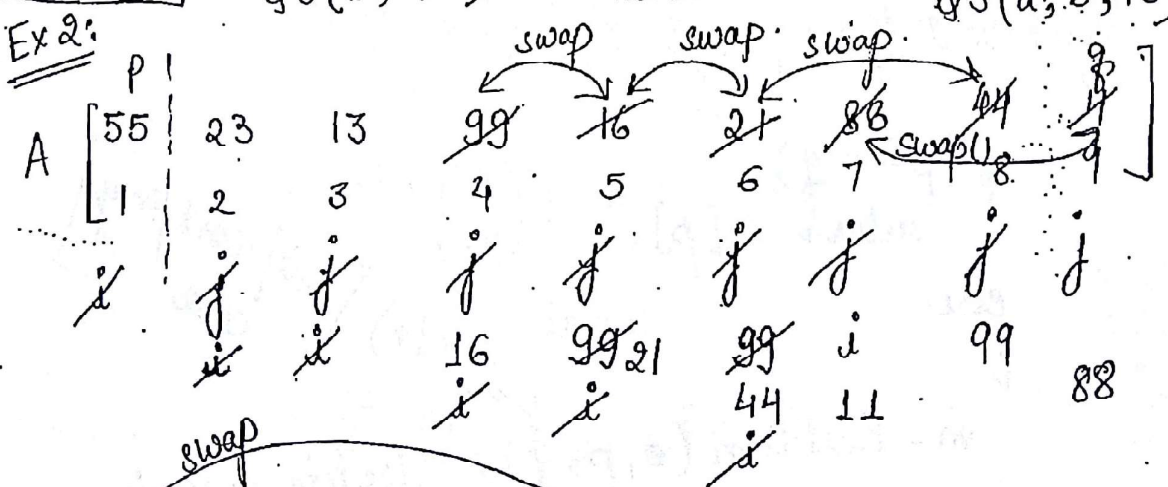 Ex 2:
swap swap. swap.
p q
A [55 23 13 99 16 21 88 44 11]
swap()
1 2 3 4 5 6 7 8 9
i j j j j j j j j
i i 16 99 21 99 i 99 88
i i 44 11
swap i